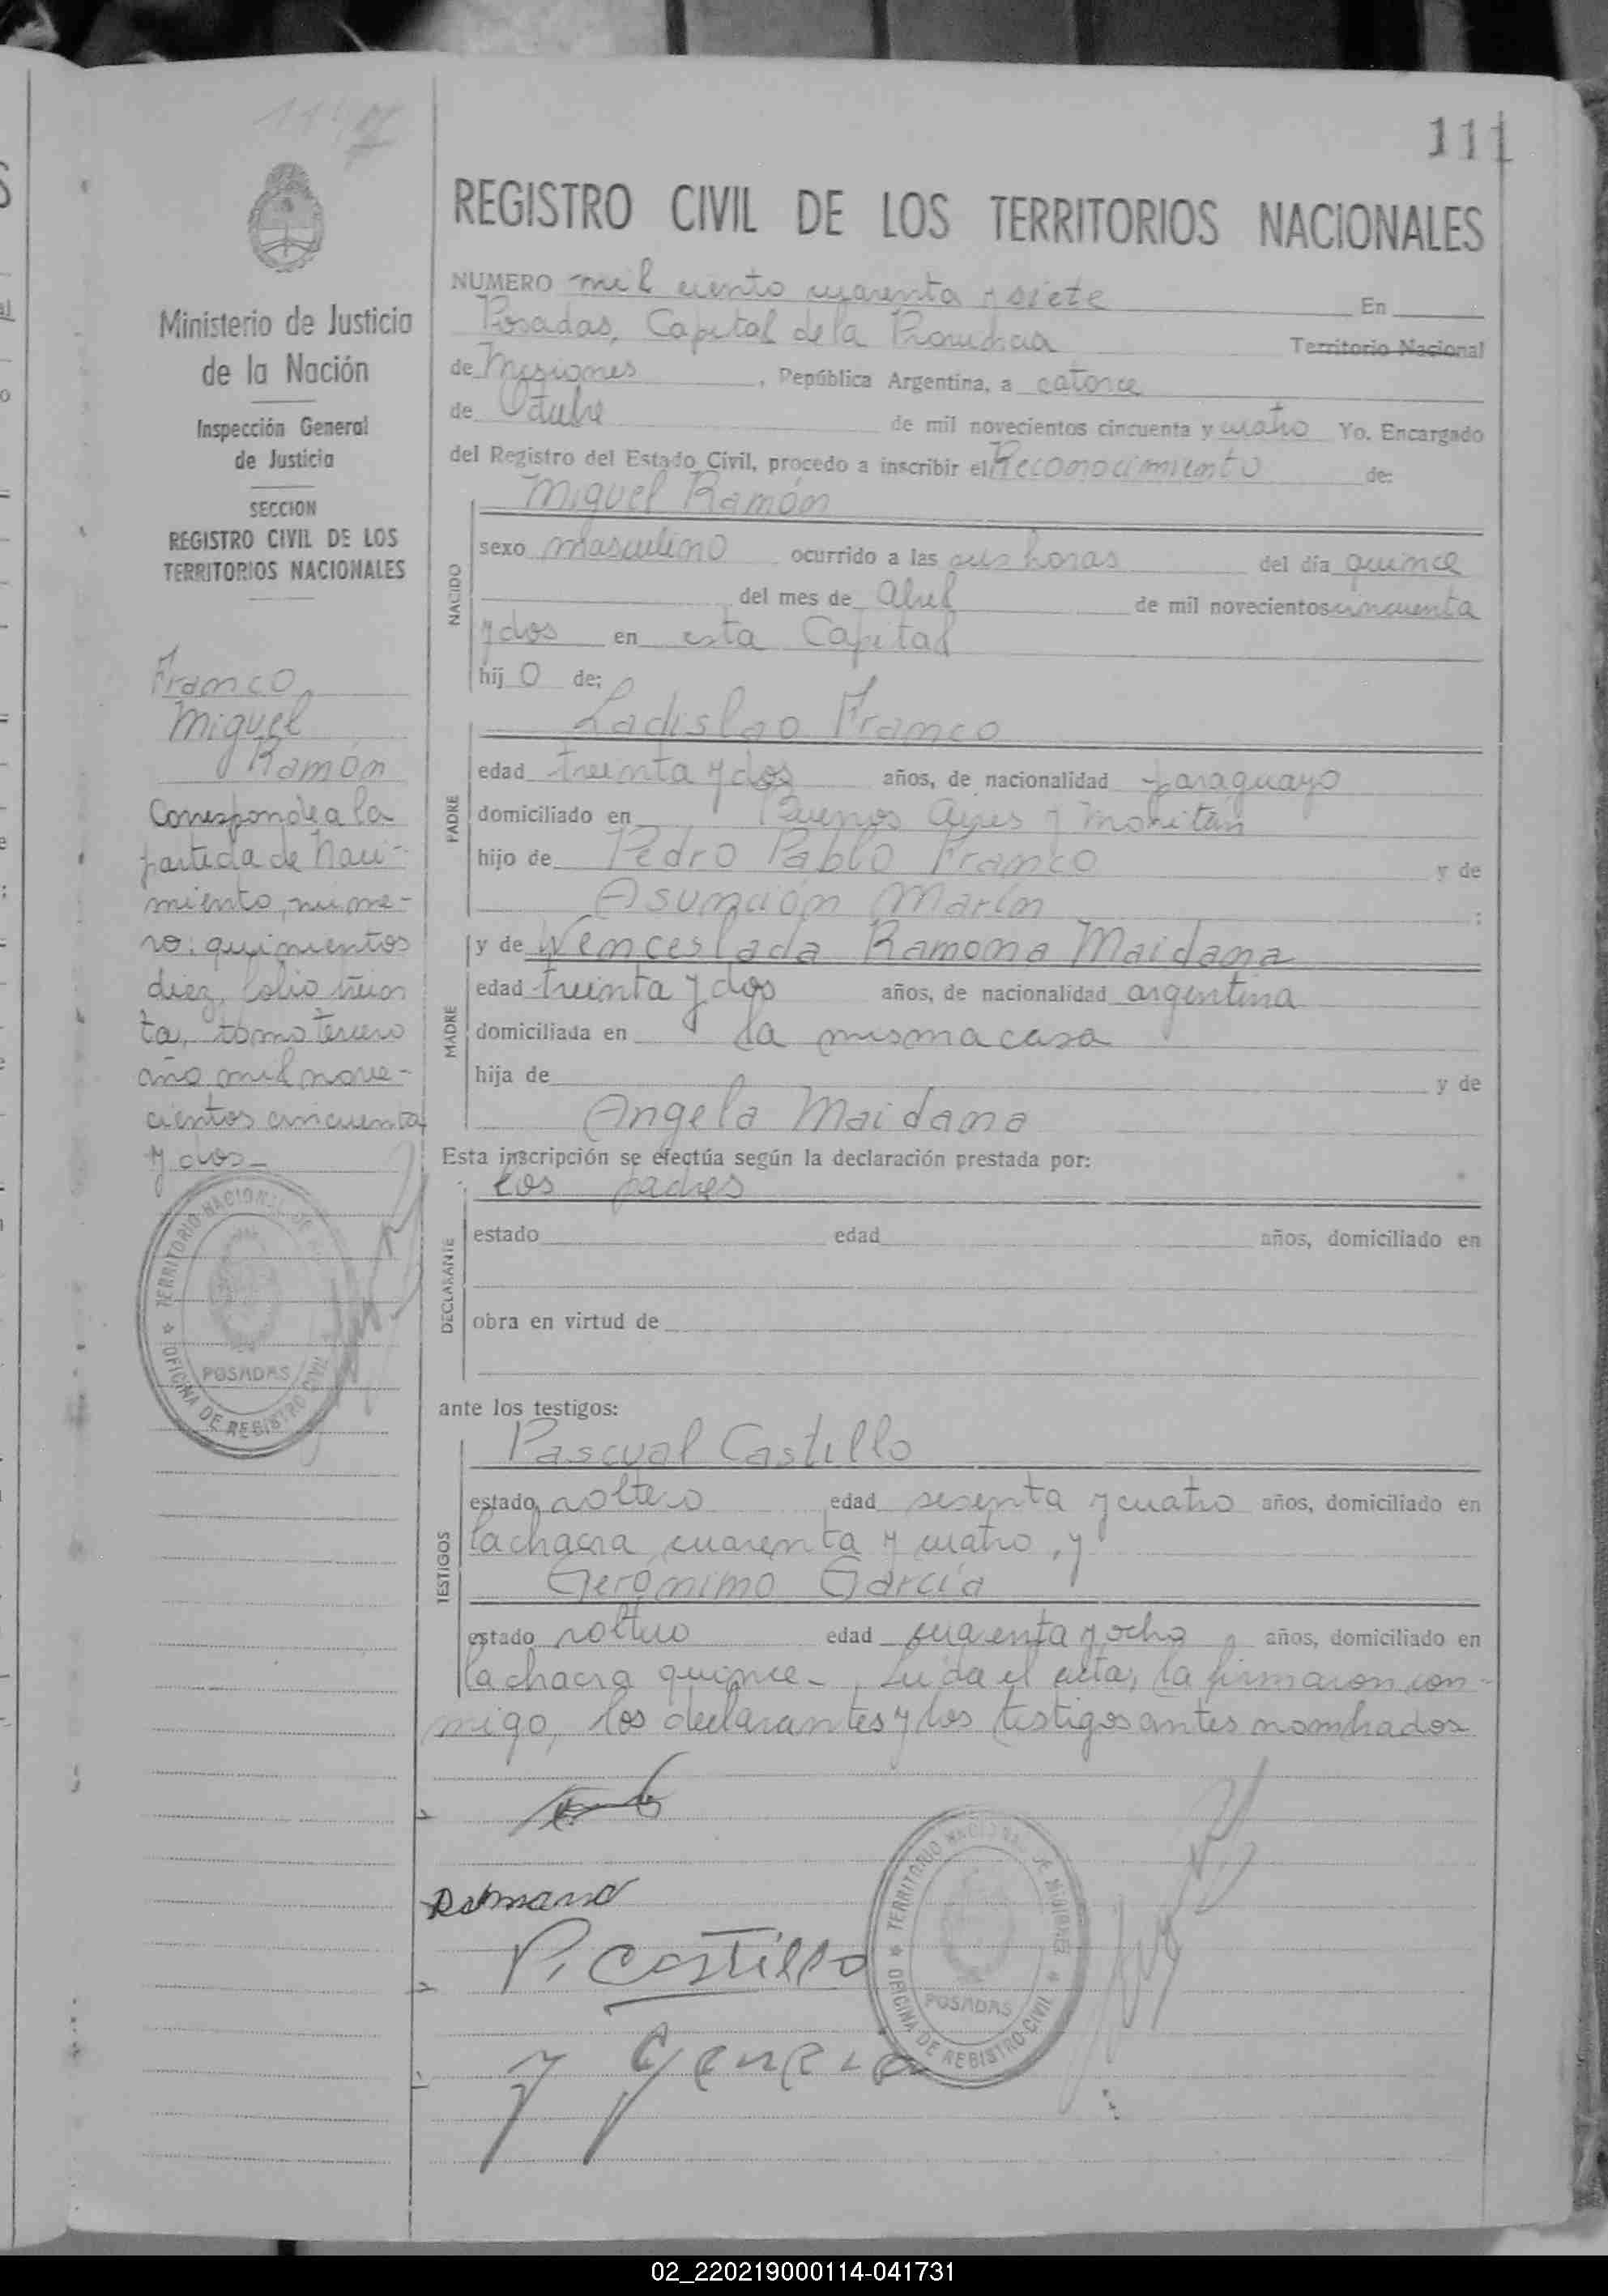 111
REGISTRO CIVIL DE LOS TERRITORIOS NACIONALES
Ministerio de Justicia
de la Nación
Inspección General
de Justicia
SECCION
REGISTRO CIVIL DE LOS
TERRITORIOS NACIONALES
Franco,
Miguel
Ramón
Corresponde a la
partida de naci-
miento, núme-
ro: quinientos
diez, folio trein
ta, tomo tercero
año mil nove-
cientos cincuenta
y dos_
TERRITORIO NACIONAL DE
OFICINA DE REGISTRO CIVIL
POSADAS
NUMERO mil ciento cuarenta y siete En
Posadas, Capital de la Provincia Territorio Nacional
de Misiones, República Argentina, a catorce
de Octubre de mil novecientos cincuenta y cuatro Yo, Encargado
del Registro del Estado Civil, procedo a inscribir el Reconocimiento de:
NACIDO
Miguel Ramón
sexo masculino ocurrido a las seis horas del día quince
del mes de Abril de mil novecientos cincuenta
y dos en esta Capital
hij o de:
PADRE
Ladislao Franco
edad treinta y dos años, de nacionalidad paraguayo
domiciliado en Buenos Ayres y
hijo de Pedro Pablo Franco y de
Asunción Marín ;
MADRE
y de Wenceslada Ramona Maidana
edad treinta y dos años, de nacionalidad argentina
domiciliada en la misma casa
hija de y de
Angela Maidana
Esta inscripción se efectúa según la declaración prestada por:
DECLARANTE
los padres
estado edad años, domiciliado en
obra en virtud de
ante los testigos:
TESTIGOS
Pascual Castillo
estado soltero edad sesenta y cuatro años, domiciliado en
la chacra cuarenta y cuatro, y
Gerónimo García
estado soltero edad cuarenta y ocho años, domiciliado en
la chacra quince_ Leída el acta, la firmaron con-
migo, los declarantes y los testigos antes nombrados
P. Castillo
TERRITORIO NACIONAL DE MISIONES
OFICINA DE REGISTRO CIVIL
POSADAS
02_220219000114-041731